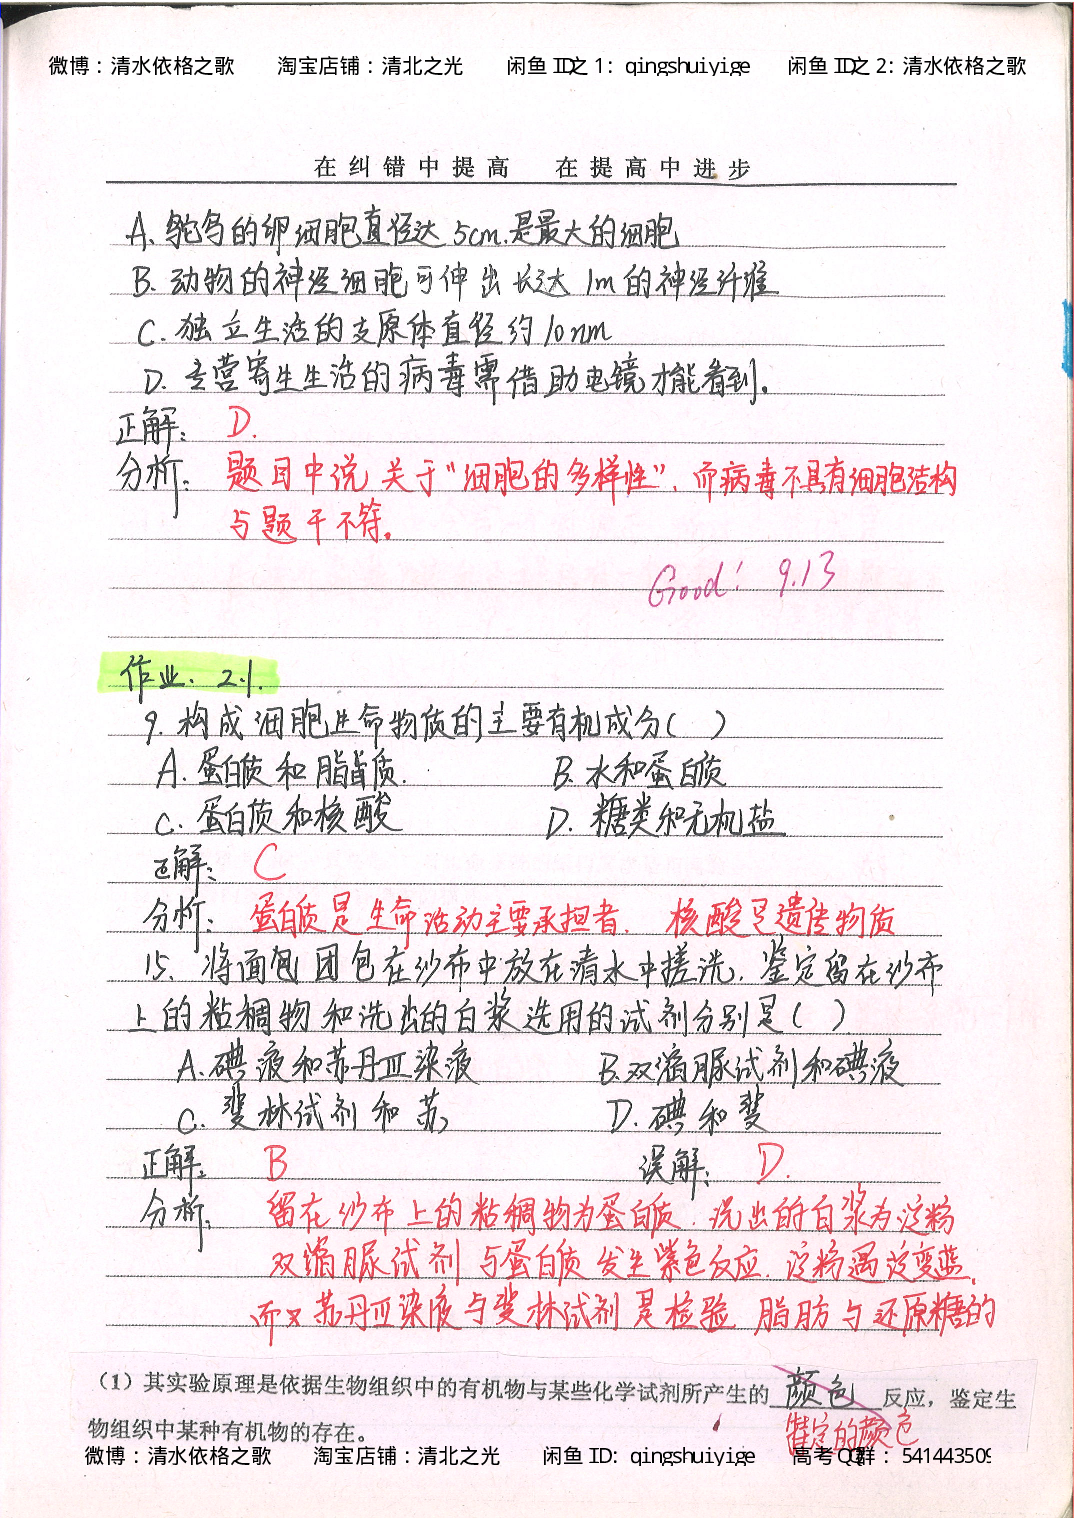 微博：清水依格之歌 淘宝店铺：清北之光 闲鱼 ID之 1: qingshuiyige 闲鱼 ID之 2: 清水依格之歌
在纠错中提高 在提高中进步
A、鸵鸟的卵细胞直径达 5cm.是最大的细胞
B. 动物的神经细胞可伸出长达 1m的神经纤维
C. 独立生活的支原体直径约10nm
D. 专营寄生生活的病毒需借助电镜才能看到。
正解： D.
分析： 题目中说关于“细胞的多样性”，而病毒不具有细胞结构
与题干不符。
Good! 9.13
作业. 2.1.
9. 构成细胞生命物质的主要有机成分( )
A. 蛋白质和脂質. B. 水和蛋白质
C. 蛋白质和核酸 D. 糖类和无机盐
正解： C
分析： 蛋白质是生命活动主要承担者. 核酸是遗传物质
15、将面包团包在纱布中放在清水中搓洗. 鉴定留在纱布
上的粘稠物和洗出的白浆选用的试剂分别是( )
A. 碘液和苏丹Ⅲ染液 B.双缩脲试剂和碘液
C. 斐林试剂和苏 D. 碘和斐
正解： B 误解： D.
分析： 留在纱布上的粘稠物为蛋白质. 洗出的白浆为淀粉
双缩脲试剂与蛋白质发生紫色反应. 淀粉遇淀变蓝.
而 苏丹Ⅲ染液与斐林试剂是检验 脂肪与还原糖的
（1）其实验原理是依据生物组织中的有机物与某些化学试剂所产生的 颜色 反应，鉴定生
特定的颜色
物组织中某种有机物的存在。
微博：清水依格之歌 淘宝店铺：清北之光 闲鱼 ID: qingshuiyige 高考 QQ群：541443509